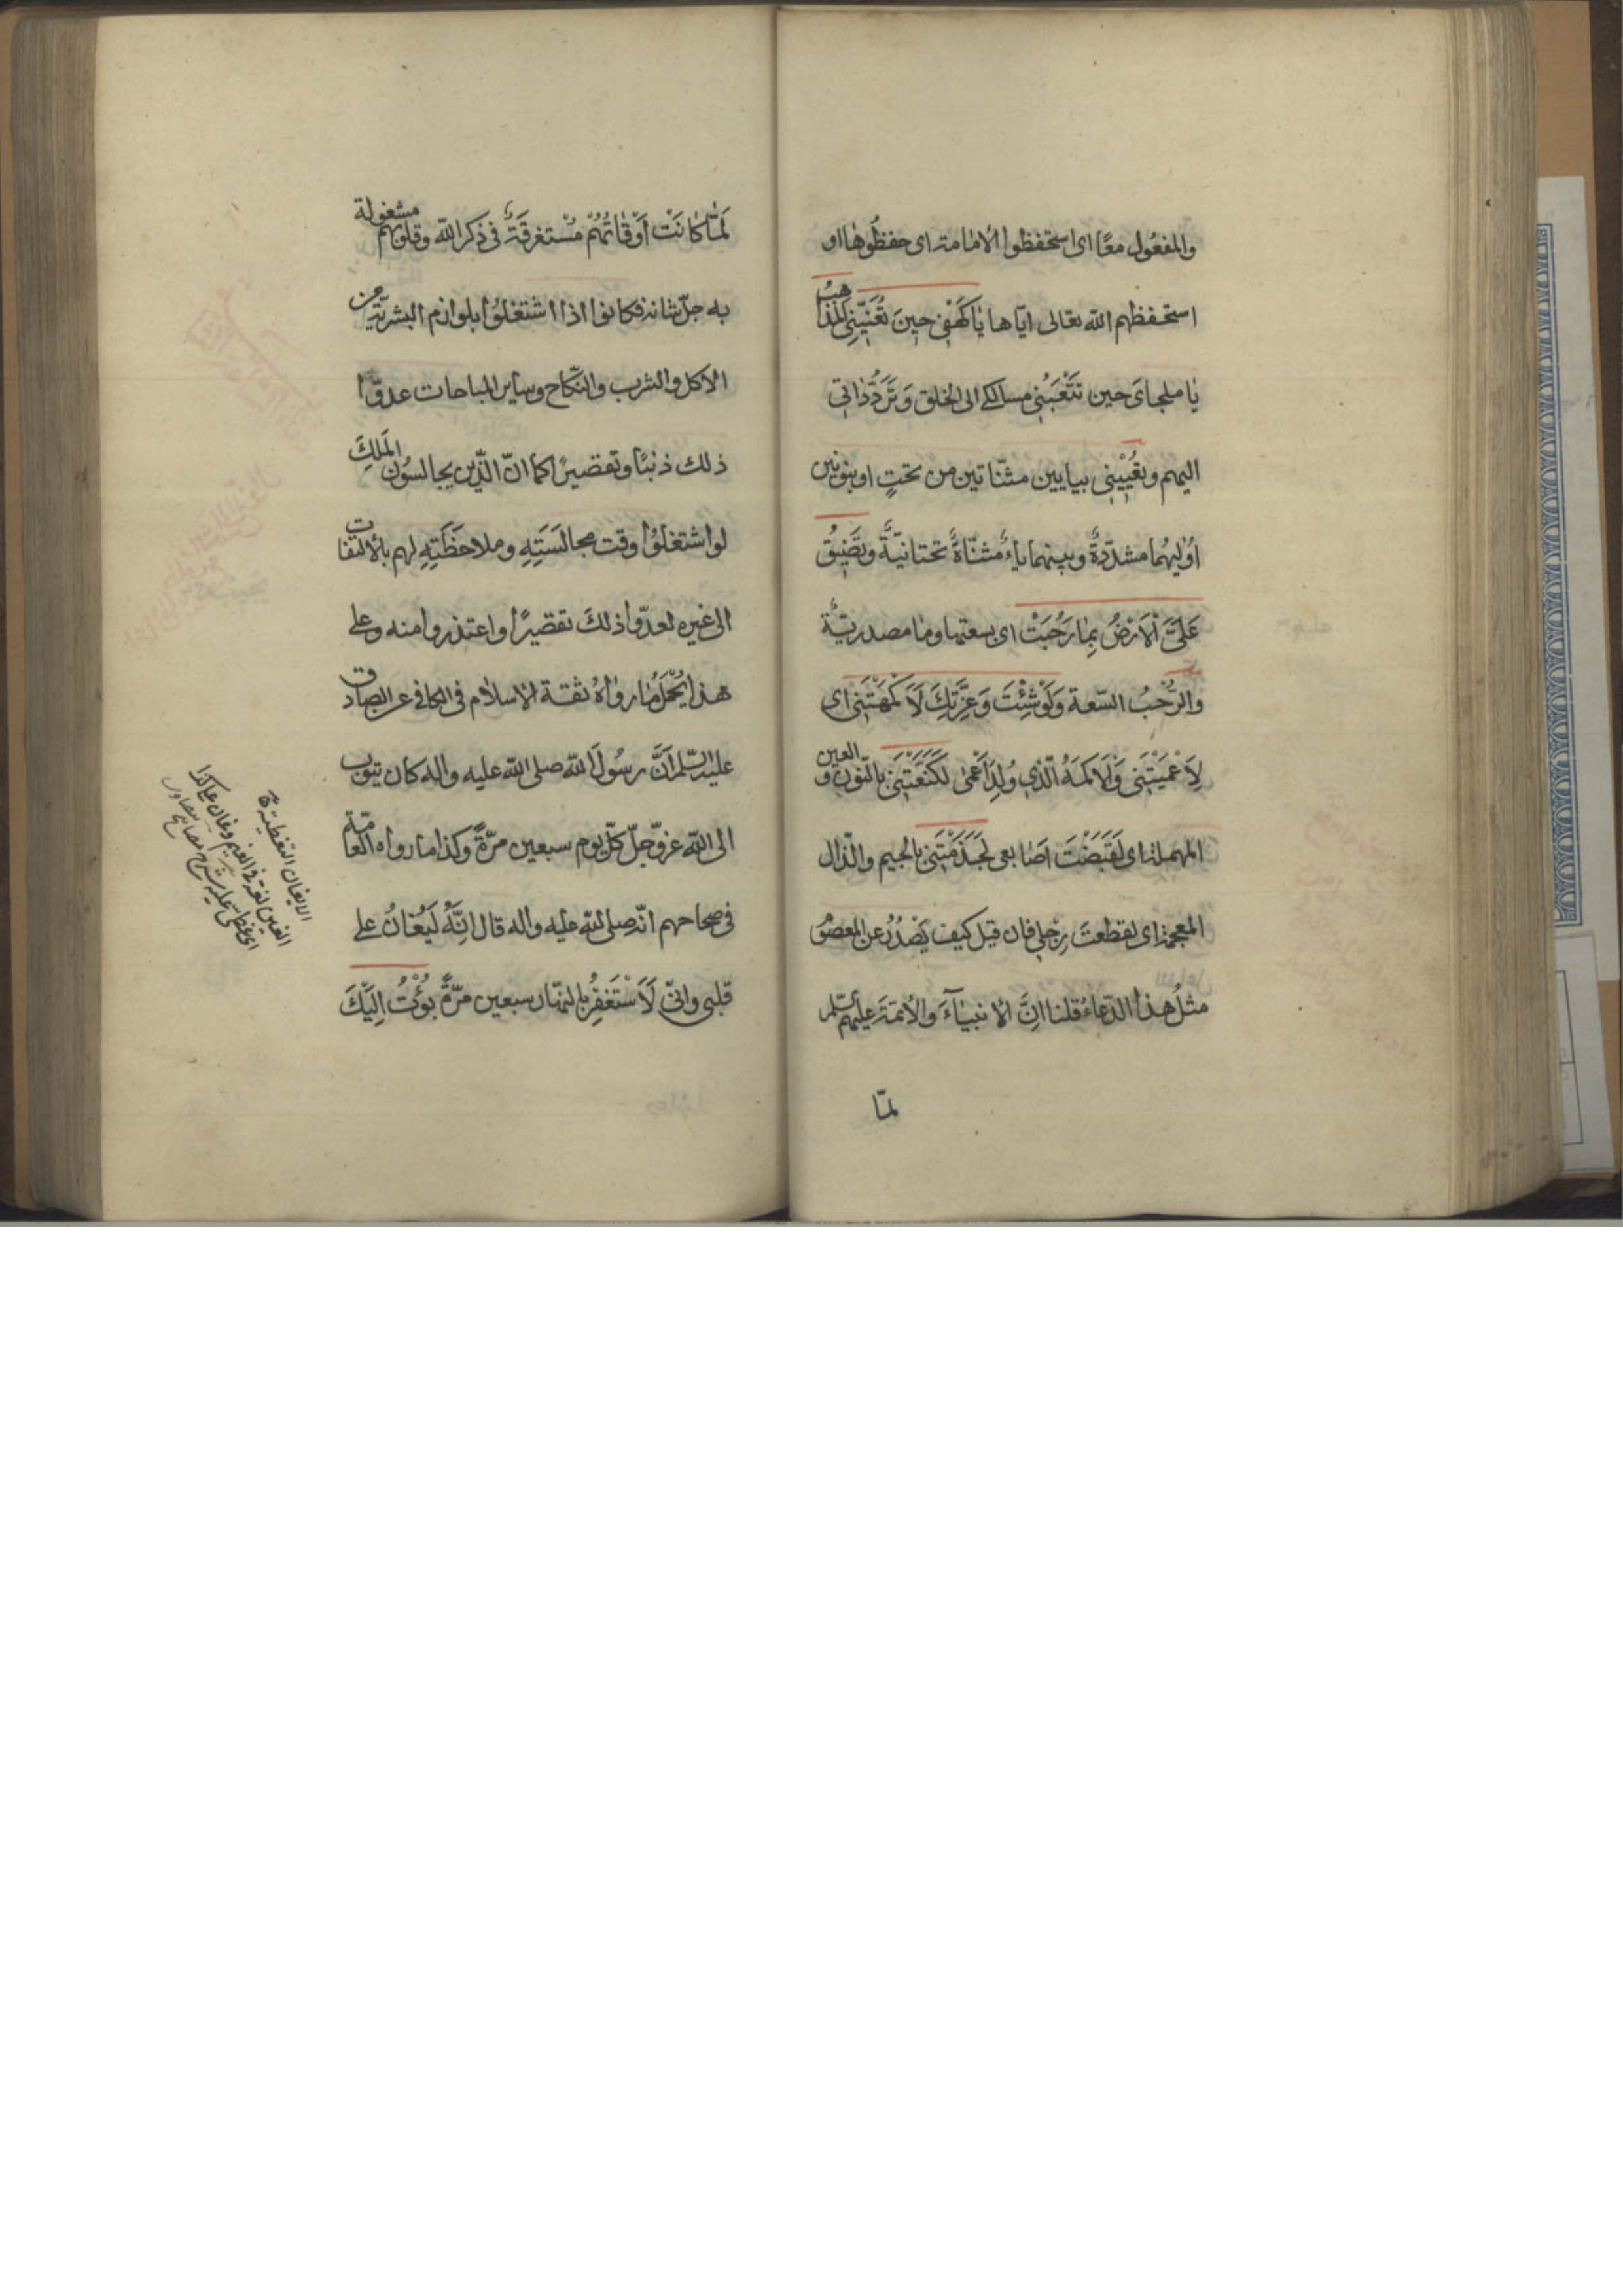 والمفعُول معًا اى استحفظوا الامامة اى حفظُوها او
استحفظهم الله تعالى ايّاها يَا كَهْفِى حِينَ تُعْيِينِى المَذَاهِبُ
يا ملجاىَ حين تتْعَبُنِى مسالكى الى الخلق وَتَردُّداتِى
اليهم وتُعْيِيْنِى بيايين مثنّاتين من تحتٍ او بنونين
اوُليٰهُما مشدّدةٌ وبينهما ياءٌ مثنّاةٌ تحتانيّةٌ وتَضِيْقُ
عَلَىَّ الْاَرْضُ بِمَا رَحُبَتْ اى بسعتها وما مصدريّة
والرُّحْبُ السّعة وَلَوْ شِئْتَ وَعِزَّتِكَ لَاَكْمَهْتَنِى اى
لَاَعْمَيْتَنِى وَالاَكمَهُ الّذى وُلِدَ اَعْمٰى لَكَنَّعْتَنِى بالنّون والعين
المهملة اى لَقَبَضْتَ اَصَابعى لَجَذَمْتَنِى بالجيم والذّال
المعجمة اى لقطعتَ رِجْلى فان قيل كيف يَصْدُرُ عن المعصُوم
مثلُ هذا الدّعاءُ قلنا انَّ الانبيَآءَ والائمّةَ عليهم السّلم
لمّا
لَمّا كانَتْ اَوْقاتُهُمْ مُسْتغرقَةً فى ذكر الله وقلوبهم مشغولة
به جلّ شانه فكانوا اذا اشْتغلُوا بلوازم البشريّة من
الاكل والشرب والنّكاح وساير المباحات عدوّا
ذلك ذنبًا وتقصيرًا كما انّ الّذين يجالسُون المَلِكَ
لو اشتغلُوا وقت مجالسَتِهِ وملاحظَتِهِ لهم بالالتفات
الى غيره لعدّوا ذلكَ تقصيرًا واعتذروا منه وعلى
هذا يُحْمَلُ ما رواهُ ثقة الاسلام فى الكافى عن الصادق
عليه السّلم اَنَّ رسُولَ الله صلى الله عليه واله كان يتوب
الى الله عزّوجلّ كلّ يوم سبعين مرّةً وكذا ما رواه العامّة
فى صحاحهم انّه صلى الله عليه واله قال اِنَّهُ لَيُغَانُ على
قلبى وانّى لَاَسْتَغفِرُ بالنهار سبعين مرّةً بُؤْتُ اِلَيْكَ
الايغان التغطية
الغين لغة والغيم وغان على كذا
اى غطّى عليه شرح مصابيح